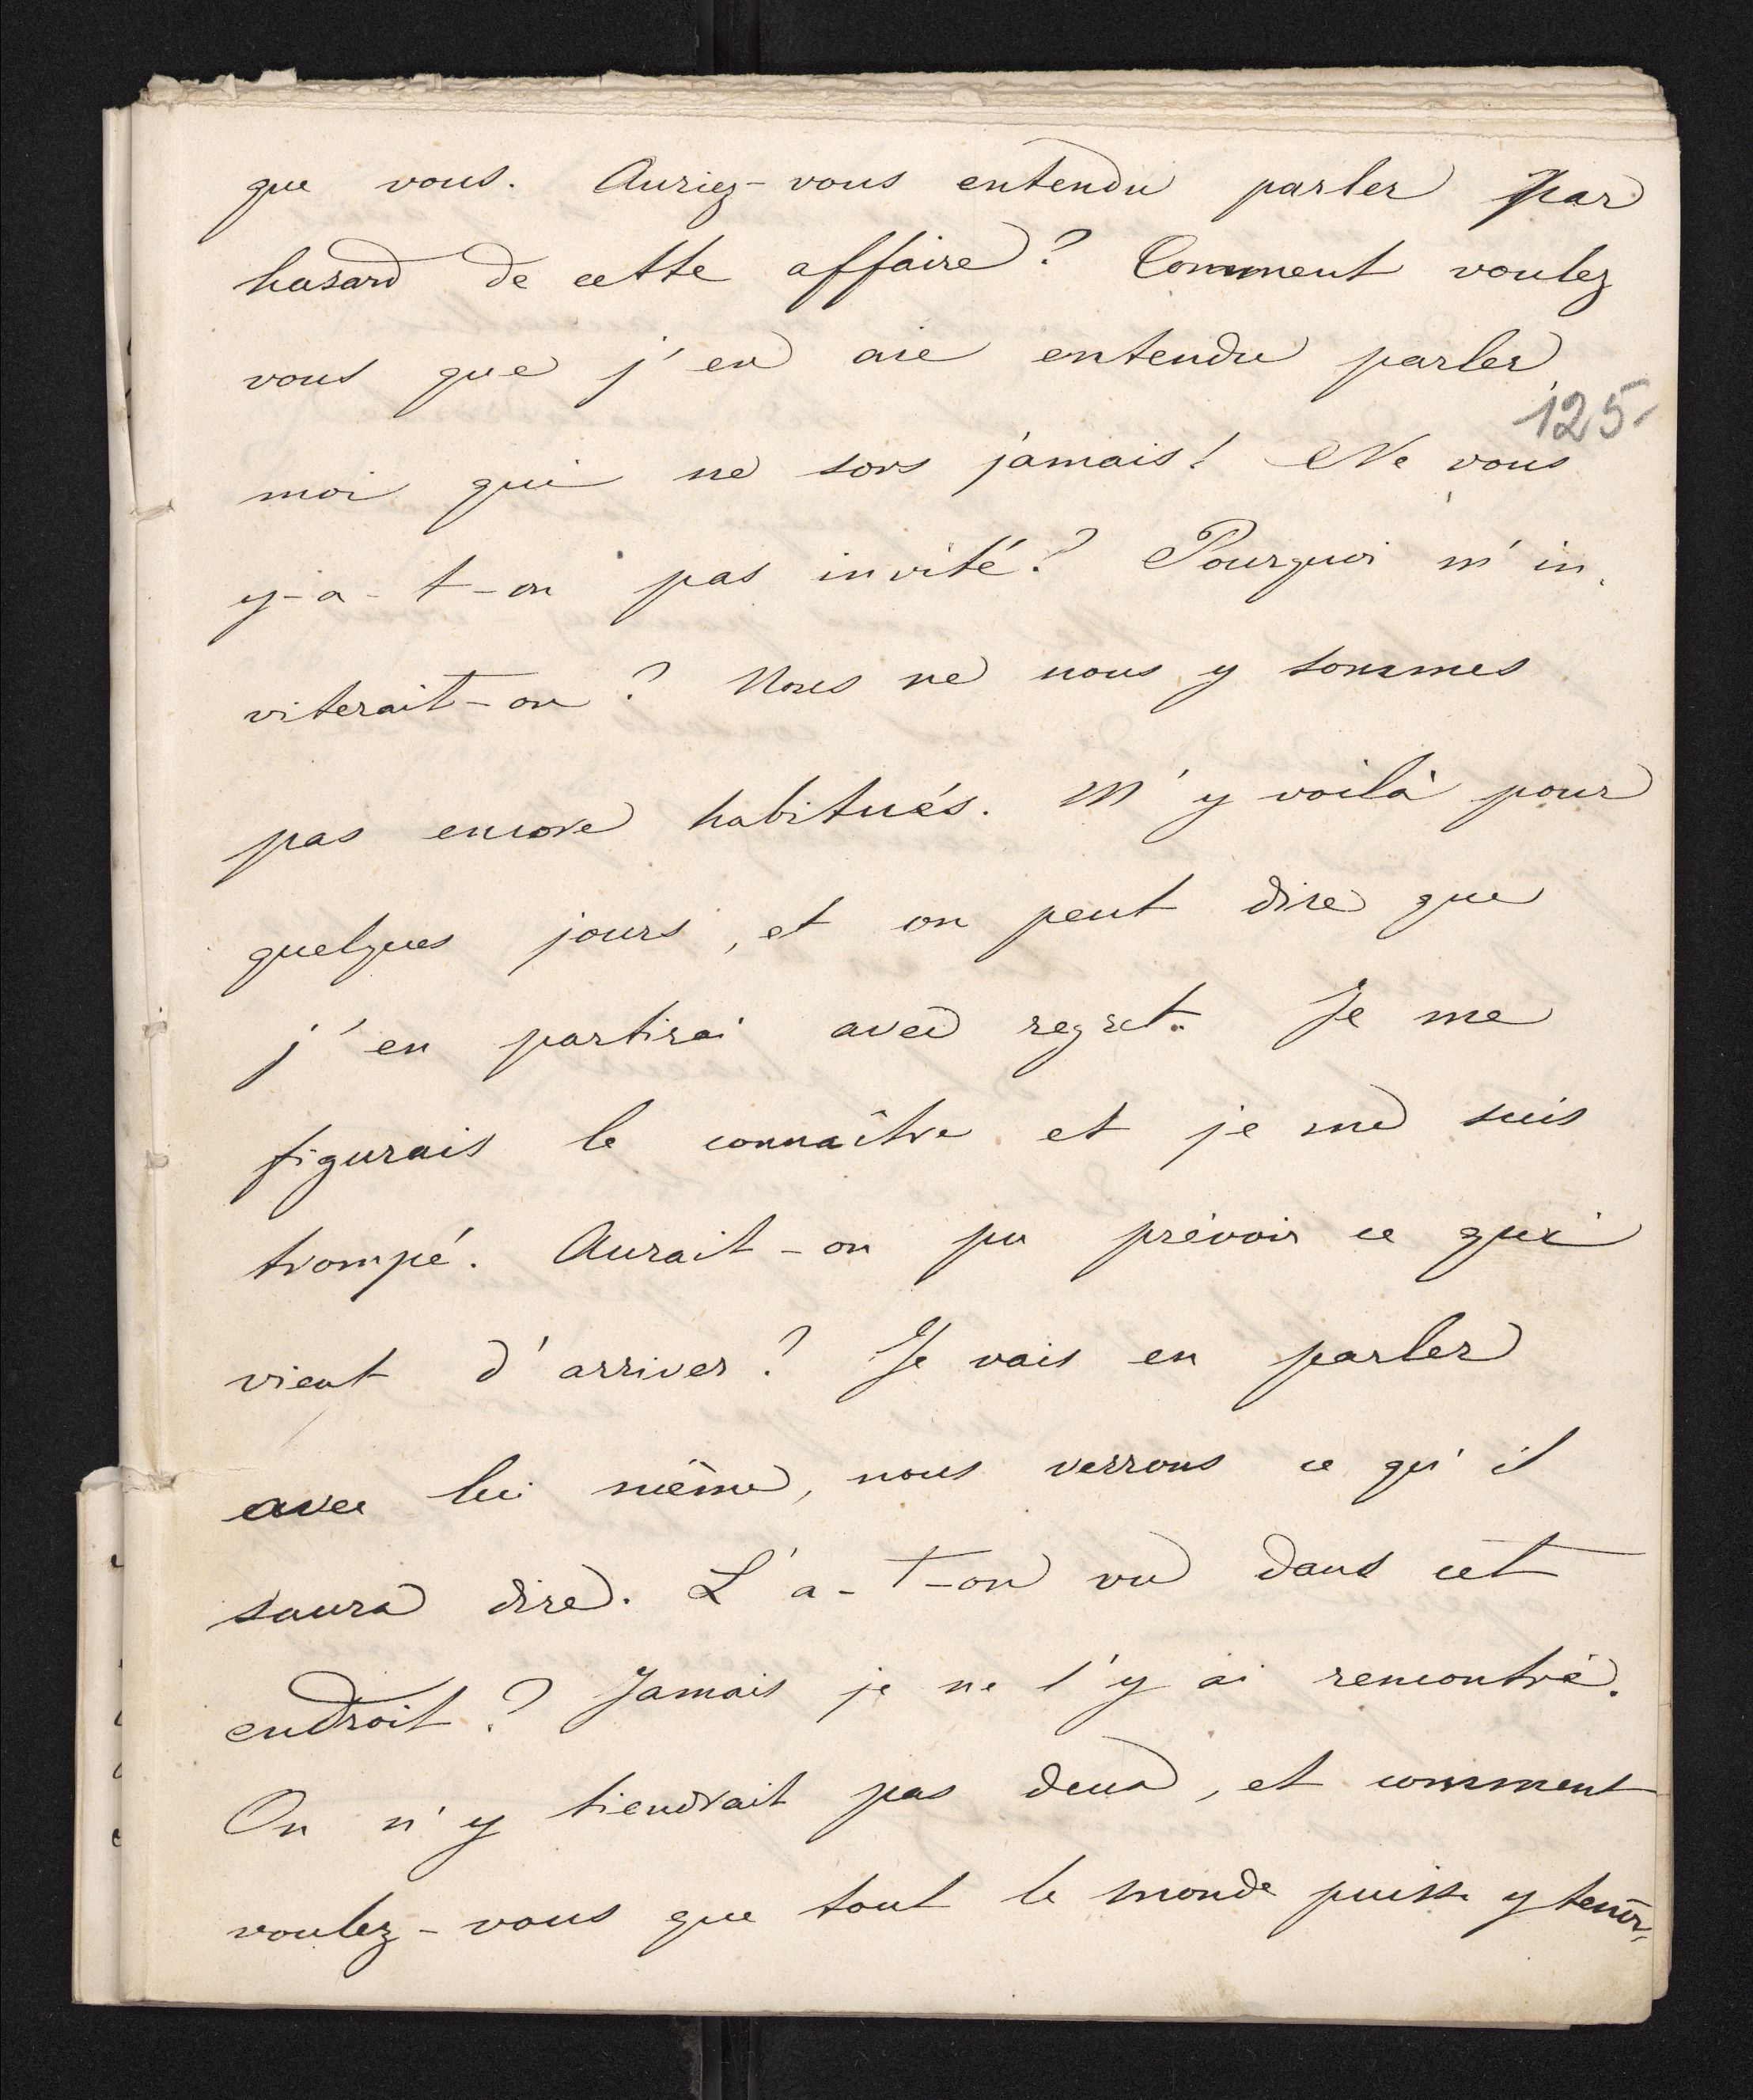 que vous. Auriez-vous entendu parler par
hasard de cette affaire? Comment voulez
vous que j'en aie entendu parler,
125-
moi qui ne sors jamais! Ne vous
y-a-t-on pas invité? Pourquoi m'in-
viterait-on? Nous ne nous y sommes
pas encore habitués. M'y voilà pour
quelques jours, et on peut dire que
j'en partirai avec regret. Je me
figurais le connaître et je me suis
trompé. Aurait-on pu prévoir ce qui
vient d'arriver? Je vais en parler
avec lui même, nous verrons ce qu'il
saura dire. L'a-t-on vu dans cet
endroit? Jamais je ne l'y ai rencontré.
On n'y tiendrait pas deux, et comment
voulez-vous que tout le monde puisse y tenir,